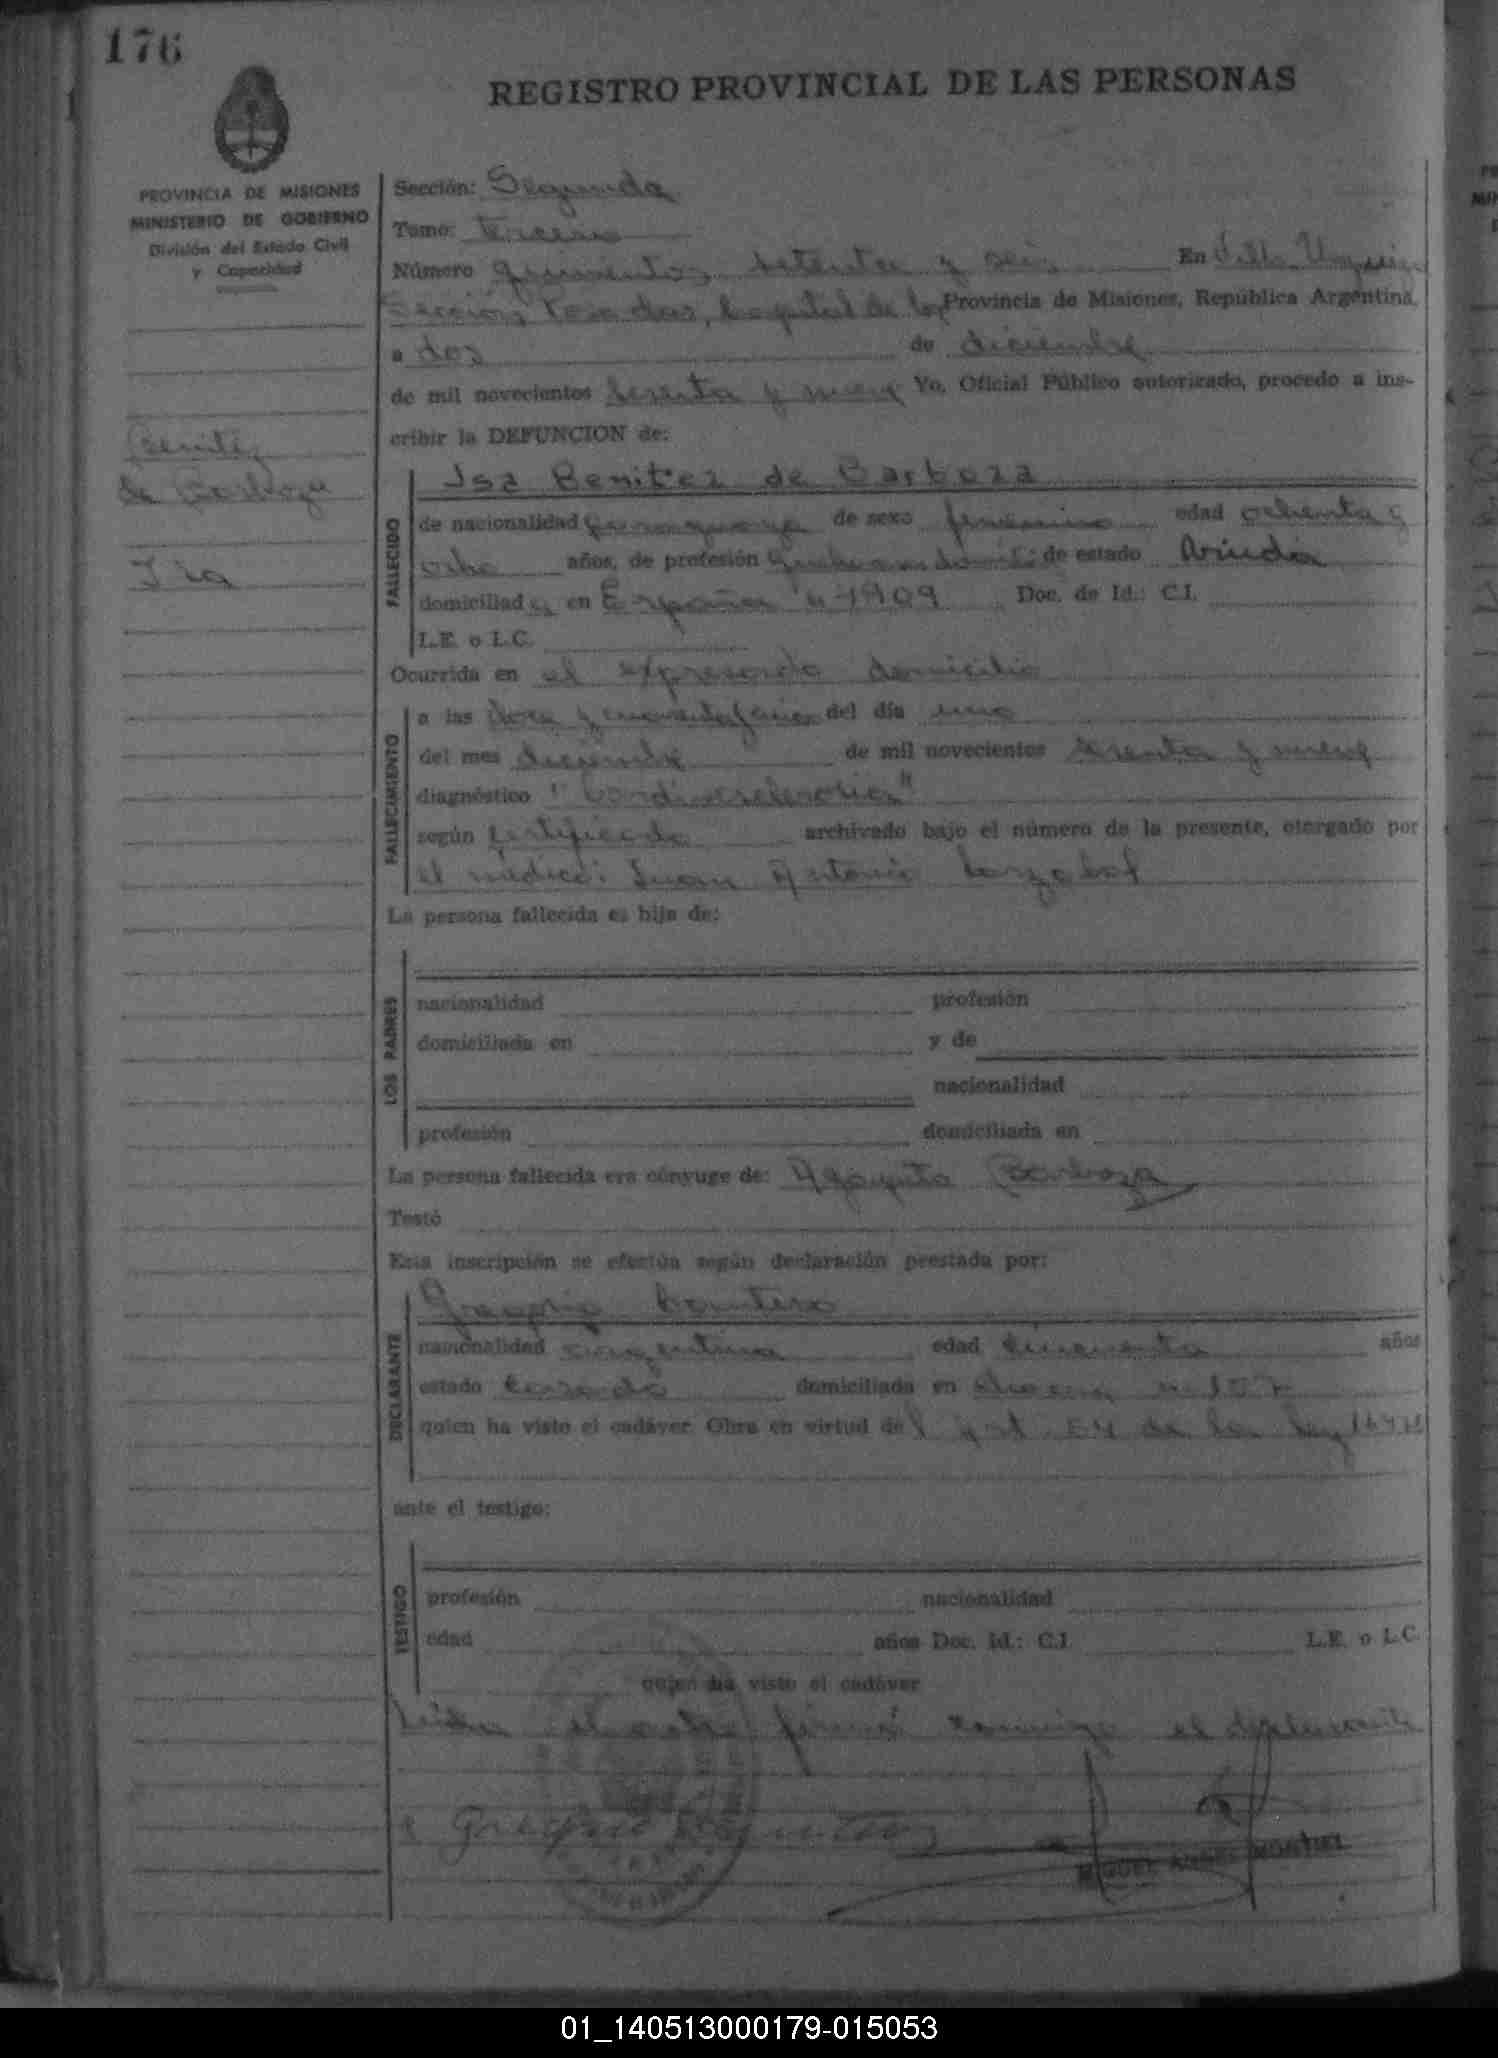 176
REGISTRO PROVINCIAL DE LAS PERSONAS
PROVINCIA DE MISIONES
MINISTERIO DE GOBIERNO
División del Estado Civil
y Capacidad
Sección: Segunda
Tomo: tercero
Número quinientos setenta y seis En Villa Urquiza
Sección, Posadas, Capital de la Provincia de Misiones, República Argentina,
a dos de diciembre
de mil novecientos sesenta y nueve Yo, Oficial Público autorizado, procedo a ins-
cribir la DEFUNCION de:
Benitez
de Barboza
Isa
FALLECIDO
Isa Benitez de Barboza
de nacionalidad paraguaya de sexo femenino edad ochenta y
ocho años, de profesión de estado viuda
domiciliad a en España n 1909 Doc. de Id.: C.I.
L.E. o L.C.
Ocurrida en el expresado domicilio
FALLECIMIENTO
a las doce y del día uno
del mes diciembre de mil novecientos sesenta y nueve
diagnóstico "Cardioesclerosis"
según certificado archivado bajo el número de la presente, otorgado por
el médico: Juan Antonio
La persona fallecida es hija de:
LOS PADRES
nacionalidad profesión
domiciliada en y de
nacionalidad
profesión domiciliada en
La persona fallecida era cónyuge de: Agapito Barboza
Testó
Esta inscripción se efectúa según declaración prestada por:
DECLARANTE
Gregorio
nacionalidad argentina edad cincuenta años
estado casado domiciliada en n 107
quien ha visto el cadáver. Obra en virtud de l art. 54 de la ley
ante el testigo:
TESTIGO
profesión nacionalidad
edad años Doc. Id.: C.I. L.E. o L.C.
quien ha visto el cadáver
Leída el acta firmó conmigo el declarante
Gregorio
MIGUEL ANGEL MONTIEL
01_140513000179-015053